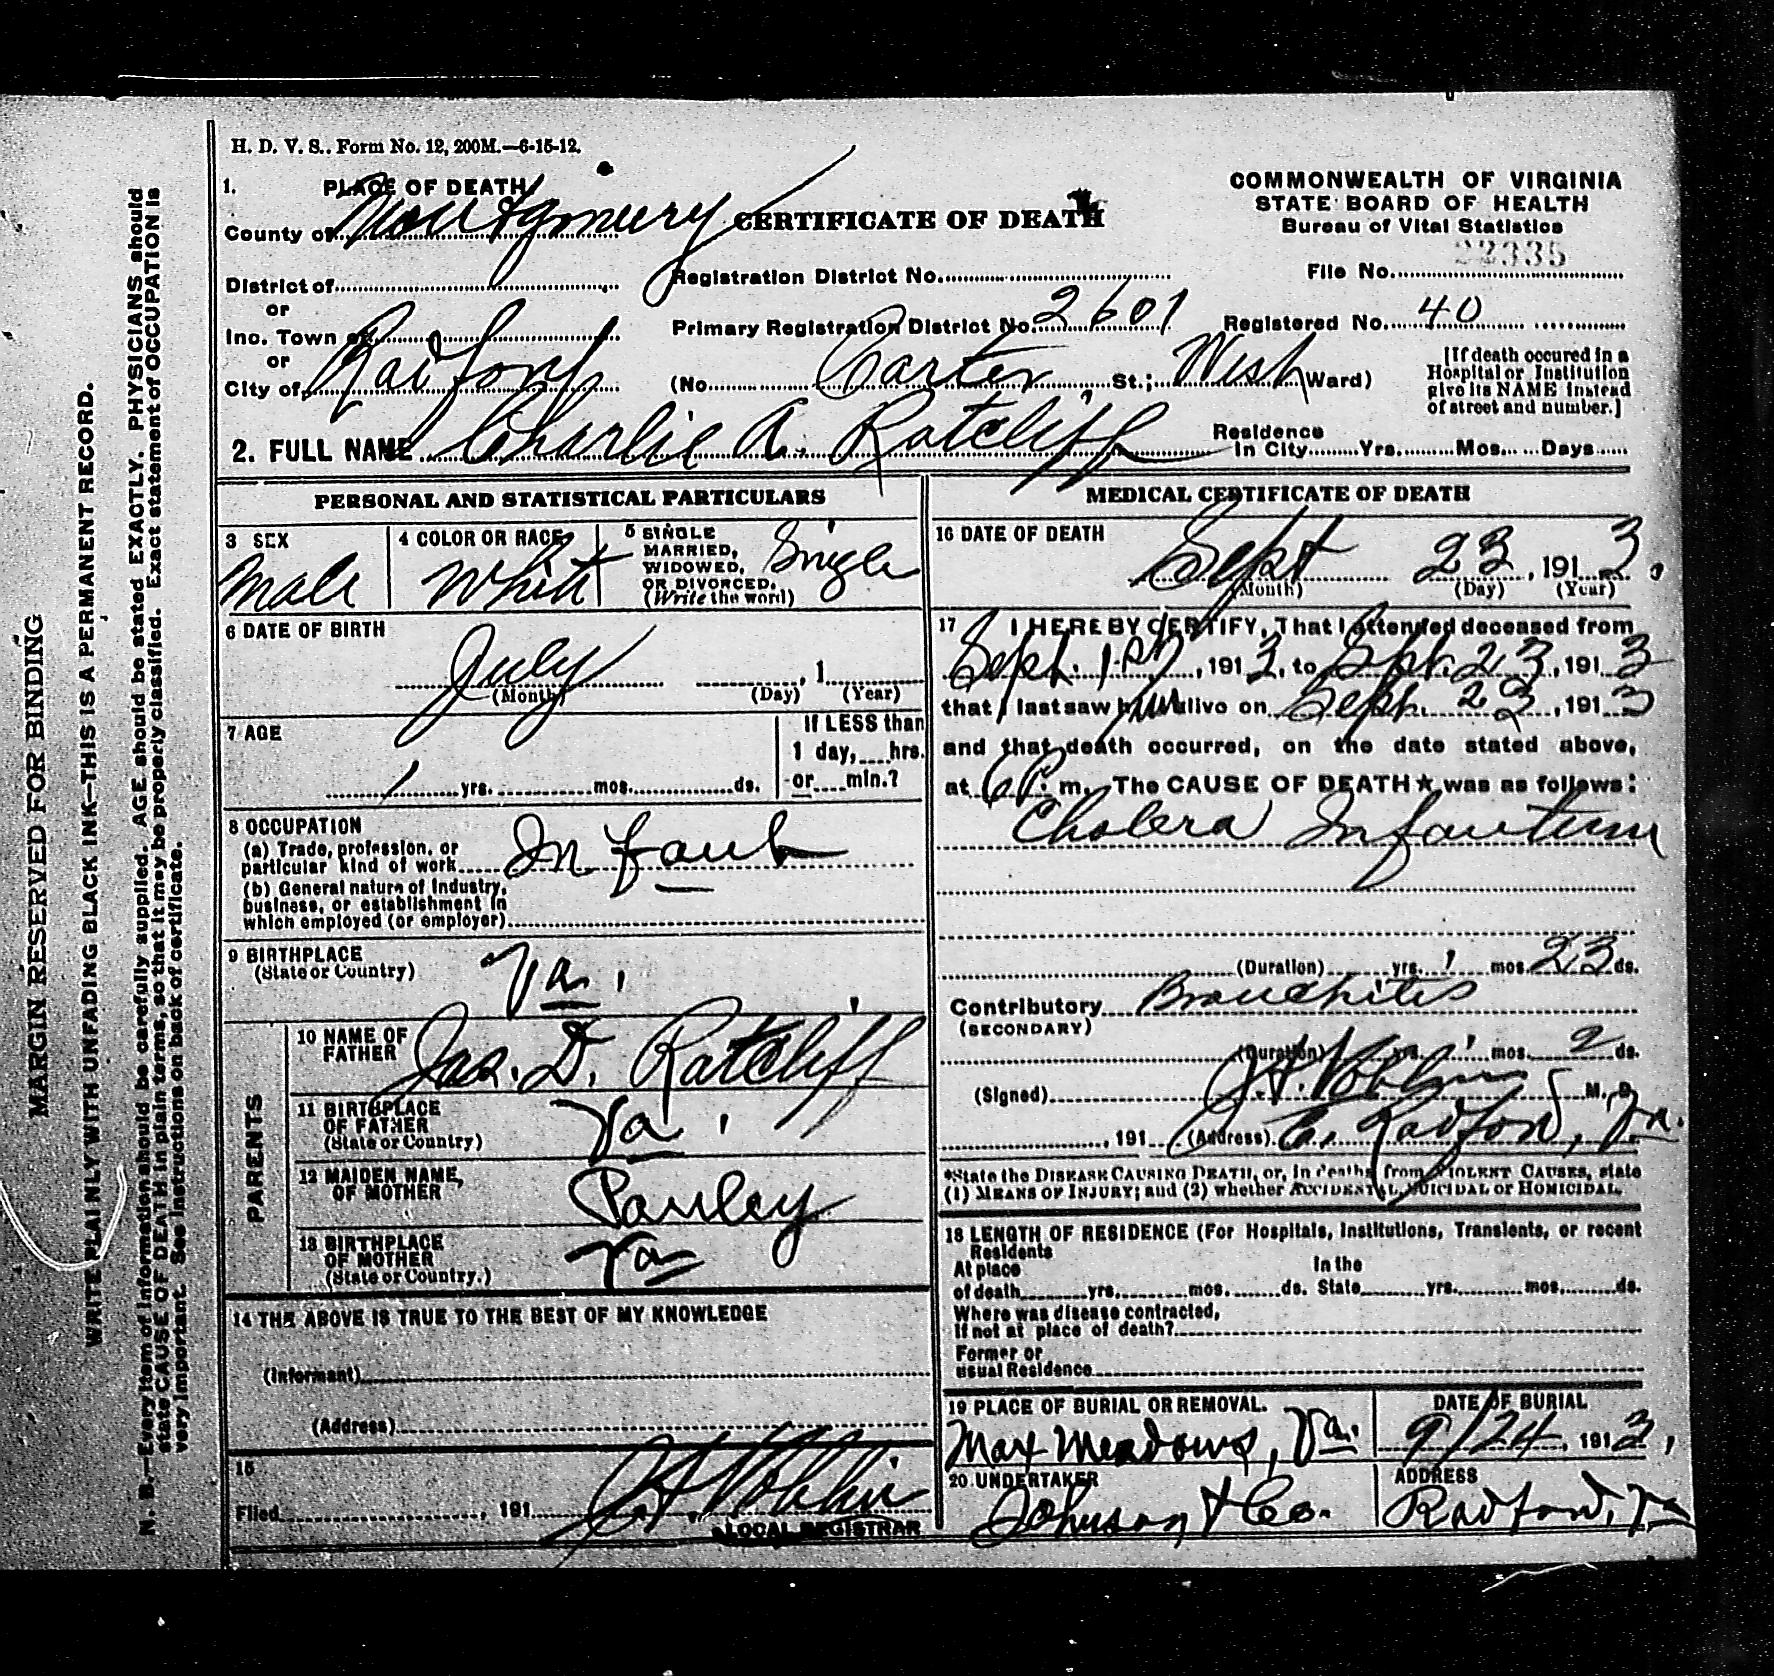 H. D. V. S.. Form No. 12, 200M.—6-15-12.
1. PLACE OF DEATH
County of Montgomery
CERTIFICATE OF DEATH
COMMONWEALTH OF VIRGINIA
STATE BOARD OF HEALTH
Bureau of Vital Statistics
22335
District of
Registration District No.
File No.
or
Inc. Town of
Primary Registration District No. 2601
Registered No. 40
or
City of Radford
(No. Carter St.; West Ward)
[If death occured in a
Hospital or Institution
give its NAME instead
of street and number.]
2. FULL NAME Charlie A. Ratcliff
Residence
In City Yrs. Mos. Days
PERSONAL AND STATISTICAL PARTICULARS
3 SEX
Male
4 COLOR OR RACE
White
5 SINGLE
MARRIED,
WIDOWED,
OR DIVORCED.
(Write the word)
Single
6 DATE OF BIRTH
July , 1
(Month) (Day) (Year)
7 AGE
1 yrs. mos. ds.
If LESS than
1 day, hrs.
or min.?
8 OCCUPATION
(a) Trade, profession, or
particular kind of work Infant
(b) General nature of Industry,
business, or establishment in
which employed (or employer)
9 BIRTHPLACE
(State or Country)
Va.
PARENTS
10 NAME OF
FATHER
Jas. D. Ratcliff
11 BIRTHPLACE
OF FATHER
(State or Country)
Va.
12 MAIDEN NAME,
OF MOTHER
Pauley
13 BIRTHPLACE
OF MOTHER
(State or Country.)
Va
14 THE ABOVE IS TRUE TO THE BEST OF MY KNOWLEDGE
(Informant)
(Address)
15
Filed , 191
LOCAL REGISTRAR
MEDICAL CERTIFICATE OF DEATH
16 DATE OF DEATH
Sept 23 , 191 3.
(Month) (Day) (Year)
17 I HEREBY CERTIFY, That I attended deceased from
Sept. 1st , 191 3, to Sept. 23, 191 3
that I last saw him alive on Sept. 23 , 191 3
and that death occurred, on the date stated above,
at 6 P. m. The CAUSE OF DEATH★ was as follows:
Cholera Infantum
(Duration) yrs. 1 mos. 23 ds.
Contributory Bronchitis
(SECONDARY)
(Duration) yrs. mos. 2 ds.
(Signed) M. D.
, 191 (Address) E. Radford, Va.
*State the DISEASE CAUSING DEATH, or, in deaths from VIOLENT CAUSES, state
(1) MEANS OF INJURY; and (2) whether ACCIDENTAL, SUICIDAL or HOMICIDAL.
18 LENGTH OF RESIDENCE (For Hospitals, Institutions, Transients, or recent
Residents
At place In the
of death yrs. mos. ds. State yrs. mos. ds.
Where was disease contracted,
If not at place of death?
Former or
usual Residence
19 PLACE OF BURIAL OR REMOVAL.
Max Meadows, Va.
DATE OF BURIAL
9/24, 191 3,
20 UNDERTAKER
Johnson & Co.
ADDRESS
Radford, Va
MARGIN RESERVED FOR BINDING
WRITE PLAINLY WITH UNFADING BLACK INK—THIS IS A PERMANENT RECORD.
N. B.—Every item of information should be carefully supplied. AGE should be stated EXACTLY. PHYSICIANS should
state CAUSE OF DEATH in plain terms, so that it may be properly classified. Exact statement of OCCUPATION is
very important. See instructions on back of certificate.